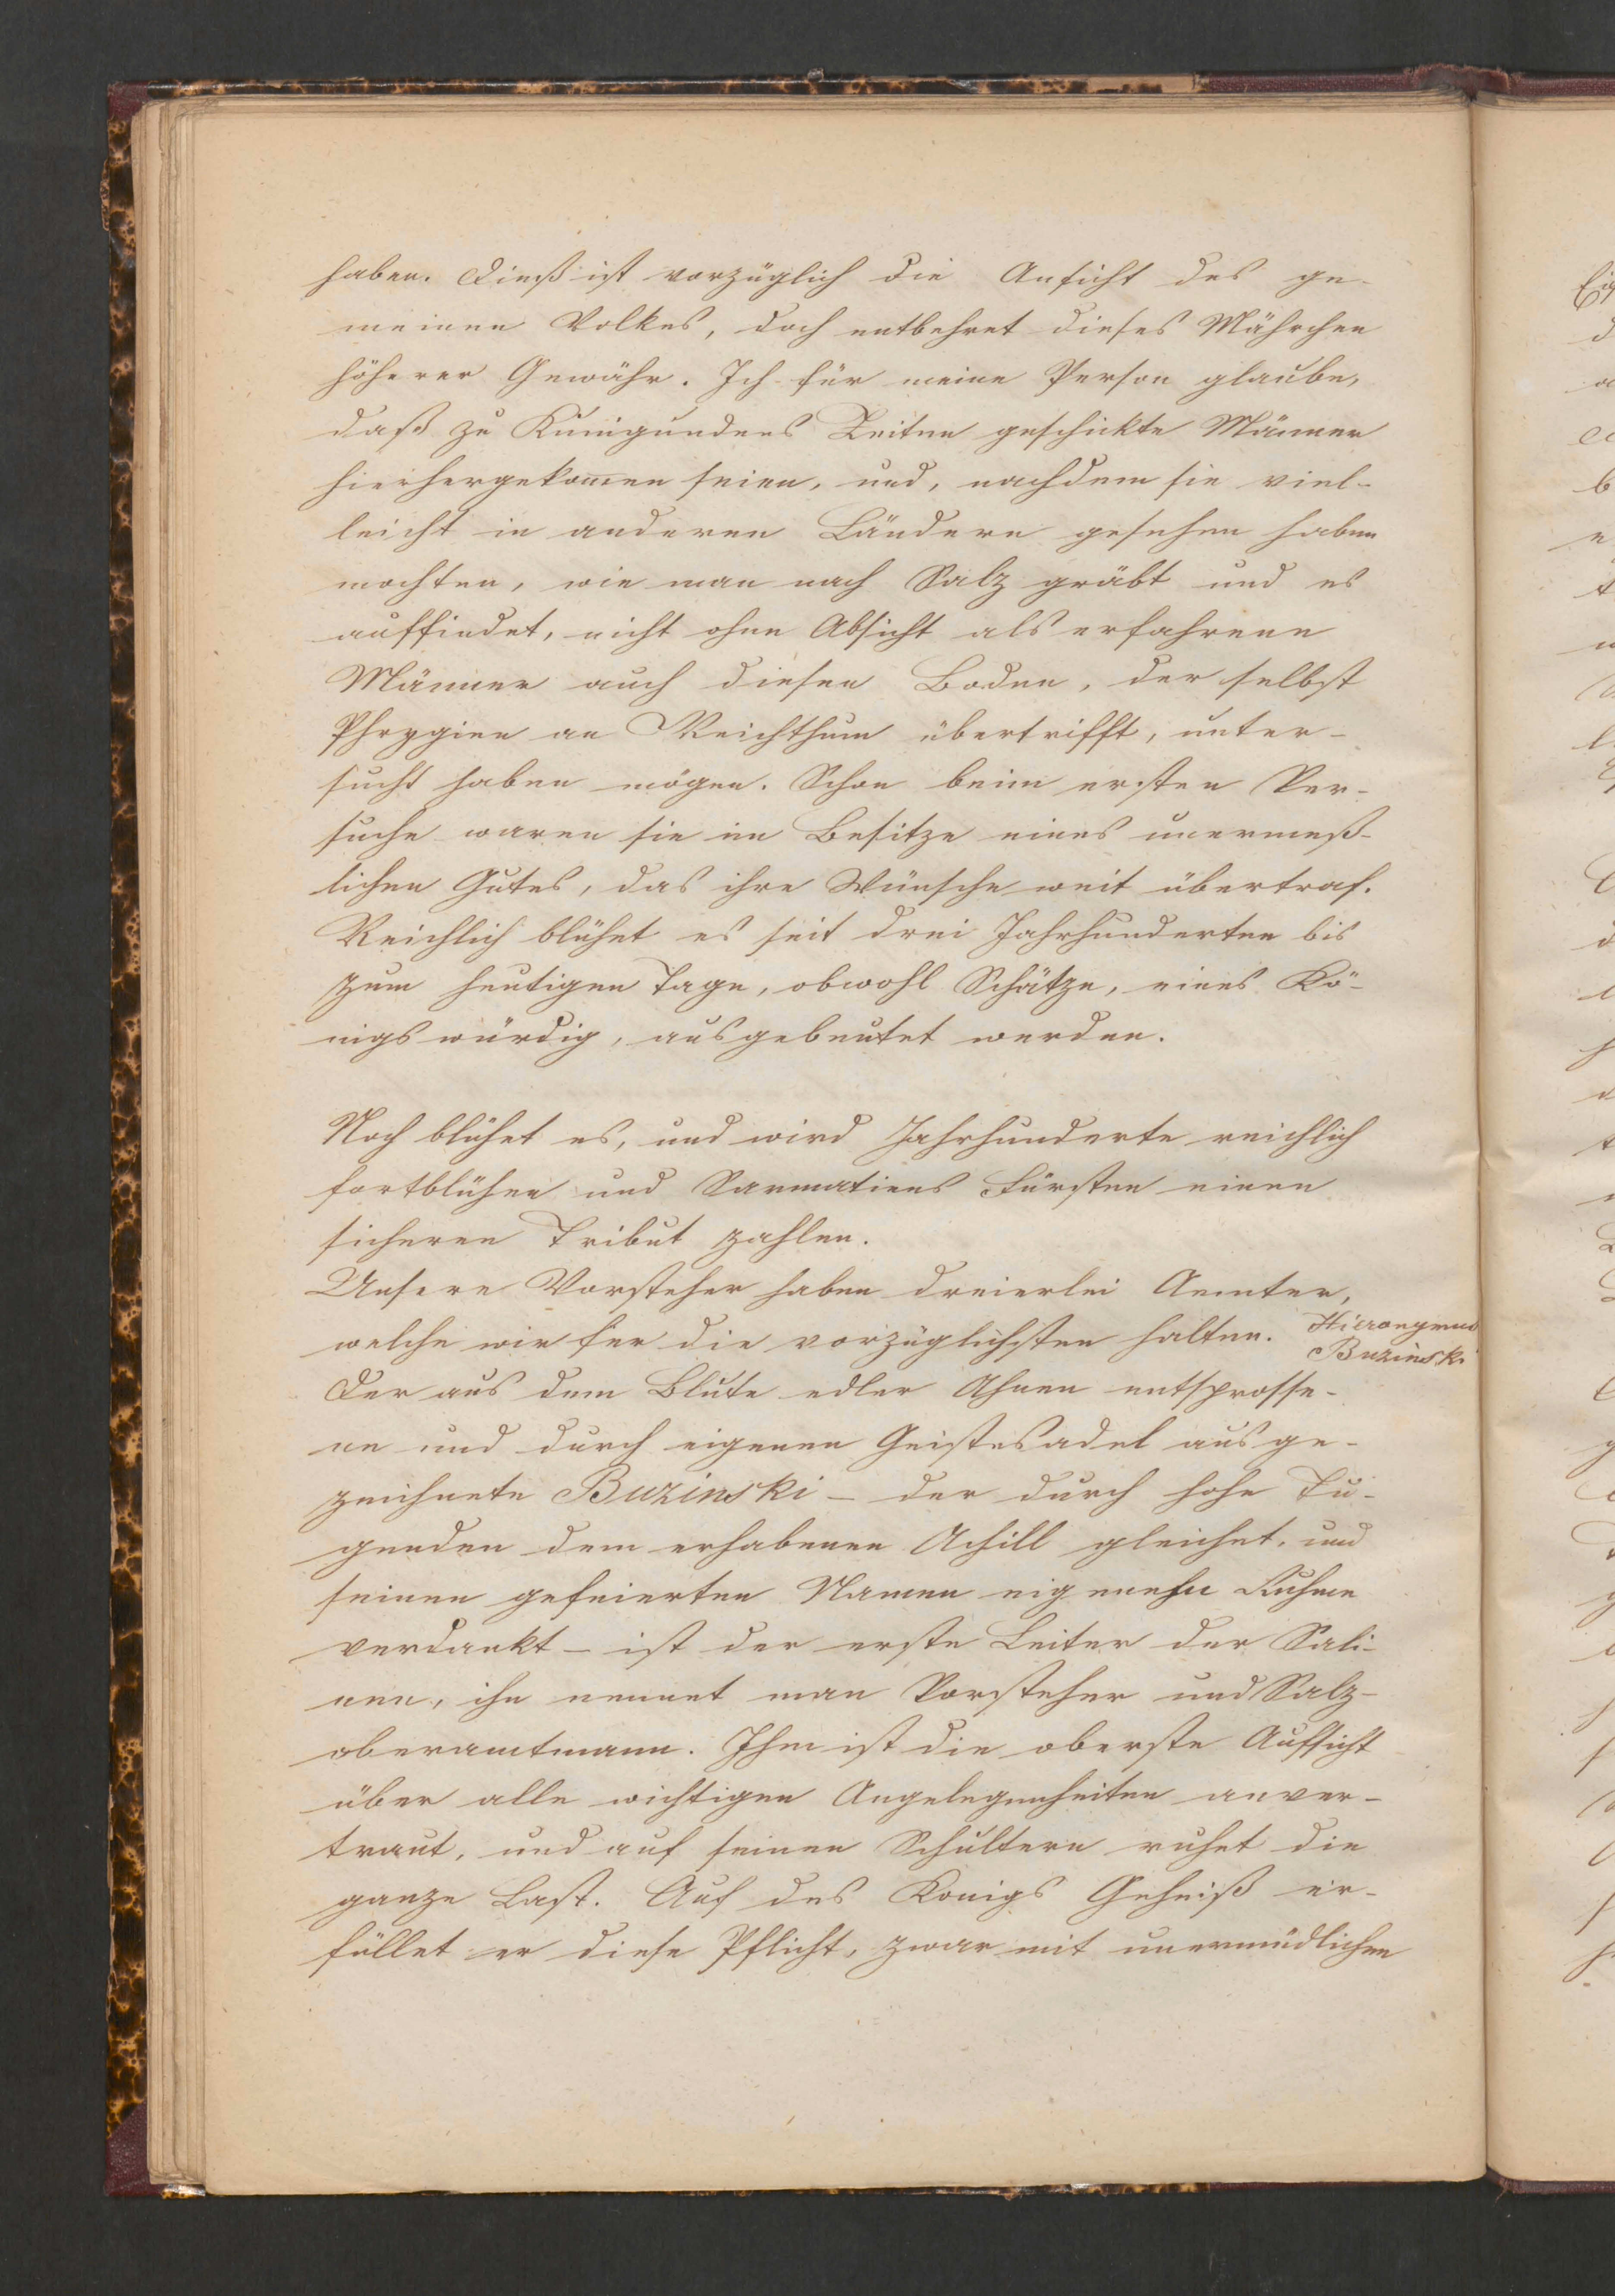 haben. Dieß ist vorzüglich die Ansicht des ge-
meinen Volkes, doch entbehret dieses Mährchen
höherer Gewähr. Ich für meine Person glaube,
daß zu Kunigundens Zeiten geschickte Männer
hierhergekom̅en seien, und, nachdem sie viel-
leicht in anderen Ländern gesehen haben
mochten, wie man nach Salz gräbt und es
auffindet, nicht ohne Absicht als erfahrene
Männer auch diesen Boden, der selbst
Phrygien an Reichthum übertrifft, unter-
sucht haben mögen. Schon beim ersten Ver-
suche waren sie im Besitze eines unermeß-
lichen Gutes, das ihre Wünsche weit übertraf.
Reichlich blühet es seit drei Jahrhunderten bis
zum heutigen Tage, obwohl Schätze, eines Kö-
nigs würdig, ausgebeutet werden.
Noch blühet es, und wird Jahrhunderte reichlich
fortblühen und Sarmatiens Fürsten einen
sicheren Tribut zahlen.
Unsere Vorsteher haben dreierlei Aemter,
welche wir für die vorzüglichsten halten.
Hieronymus
Buzinski
Der aus dem Blute edler Ahnen entsprosse-
ne und durch eigenen Geistesadel ausge-
zeichnete Buzinski – der durch hohe Tu-
genden dem erhabenen Achill gleichet, und
seinen gefeierten Namen eigenen Ruhme
verdankt – ist der erste Leiter der Sali-
nen, ihn nennet man Vorsteher und Salz-
oberamtmann. Ihm ist die oberste Aufsicht
über alle wichtigen Angelegenheiten anver-
traut, und auf seinen Schultern ruhet die
ganze Last. Auf des Konigs Geheiß er-
füllet er diese Pflicht, zwar mit unermüdlichen